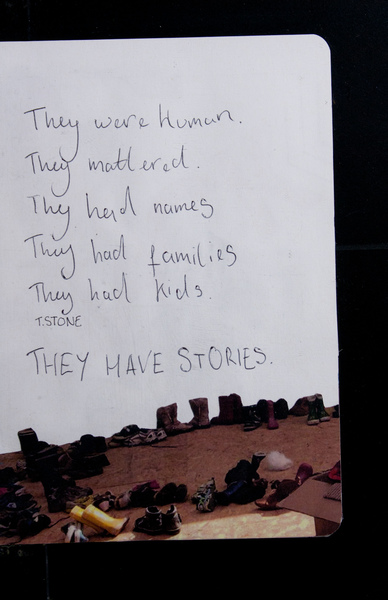 They were human.
They mattered.
They had names
They had families
They had kids.
T.STONE
THEY HAVE STORIES.